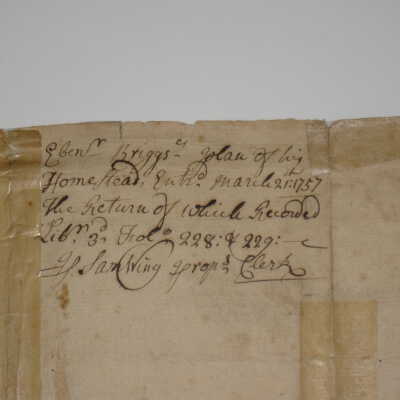 Ebenr Briggs's plan of his
Homestead, Entrd. March 21st: 1757
The Return of which Recorded
Libr. 3d, Folo. 228: & 229:
Pr. Sam Wing Proprs. Clerk